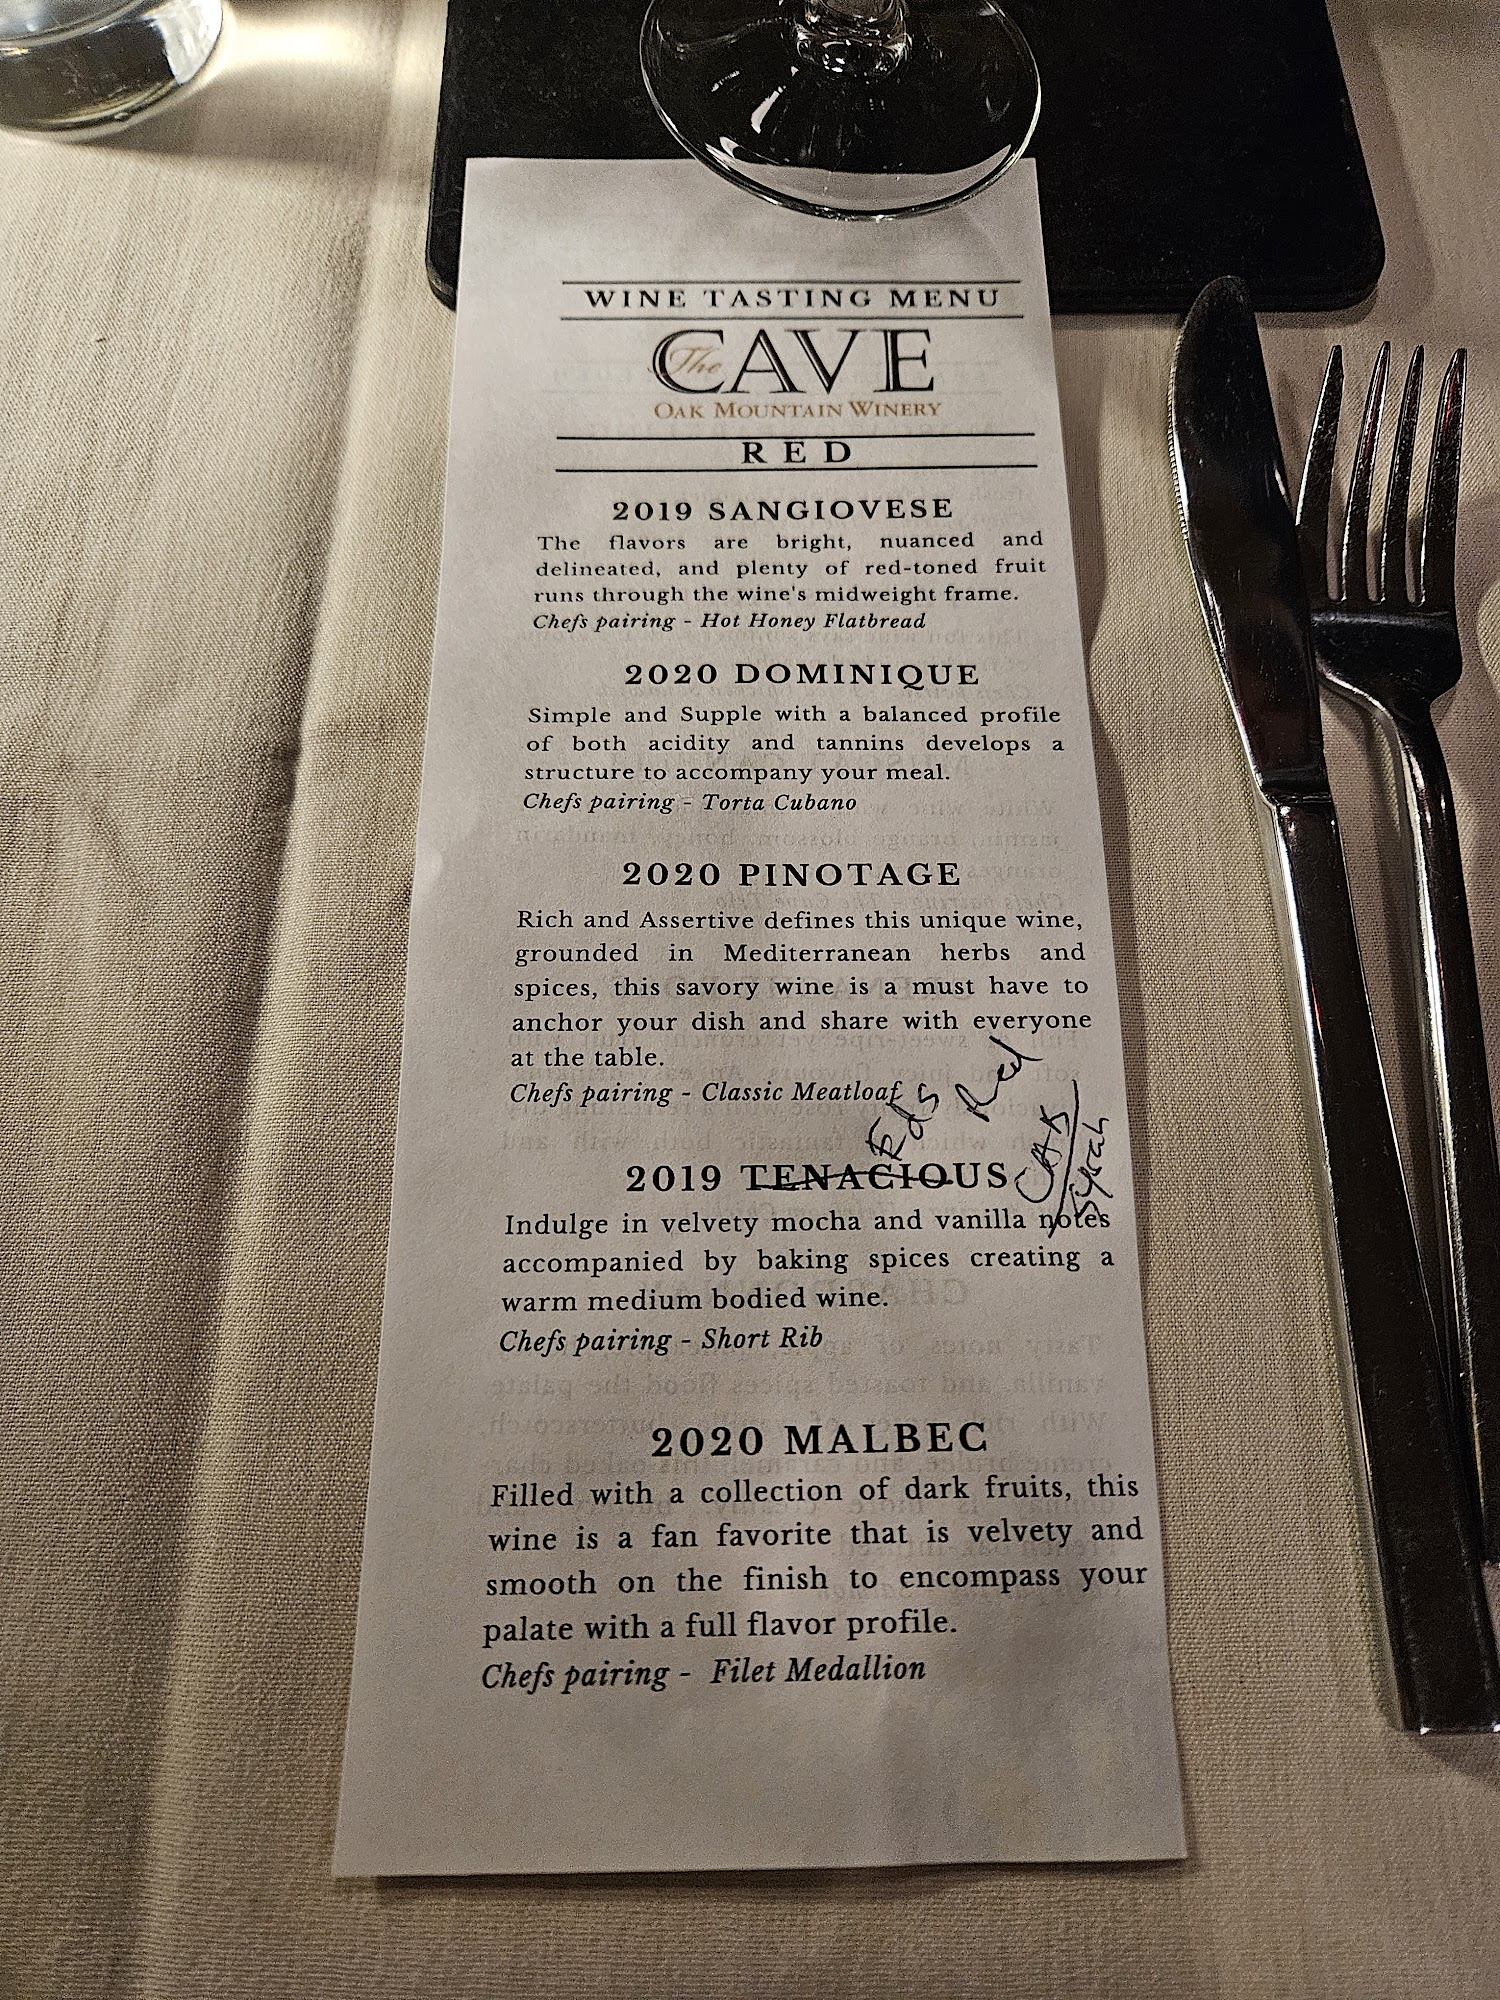 WINE TASTING MENU
The CAVE
OAK MOUNTAIN WINERY
RED
2019 SANGIOVESE
The flavors are bright, nuanced and
delineated, and plenty of red-toned fruit
runs through the wine's midweight frame.
Chefs pairing - Hot Honey Flatbread
2020 DOMINIQUE
Simple and Supple with a balanced profile
of both acidity and tannins develops a
structure to accompany your meal.
Chefs pairing - Torta Cubano
2020 PINOTAGE
Rich and Assertive defines this unique wine,
grounded in Mediterranean herbs and
spices, this savory wine is a must have to
anchor your dish and share with everyone
at the table.
Chefs pairing - Classic Meatloaf
Eds Red
2019 TENACIOUS
Syrah
Indulge in velvety mocha and vanilla notes
accompanied by baking spices creating a
warm medium bodied wine.
Chefs pairing - Short Rib
2020 MALBEC
Filled with a collection of dark fruits, this
wine is a fan favorite that is velvety and
smooth on the finish to encompass your
palate with a full flavor profile.
Chefs pairing - Filet Medallion